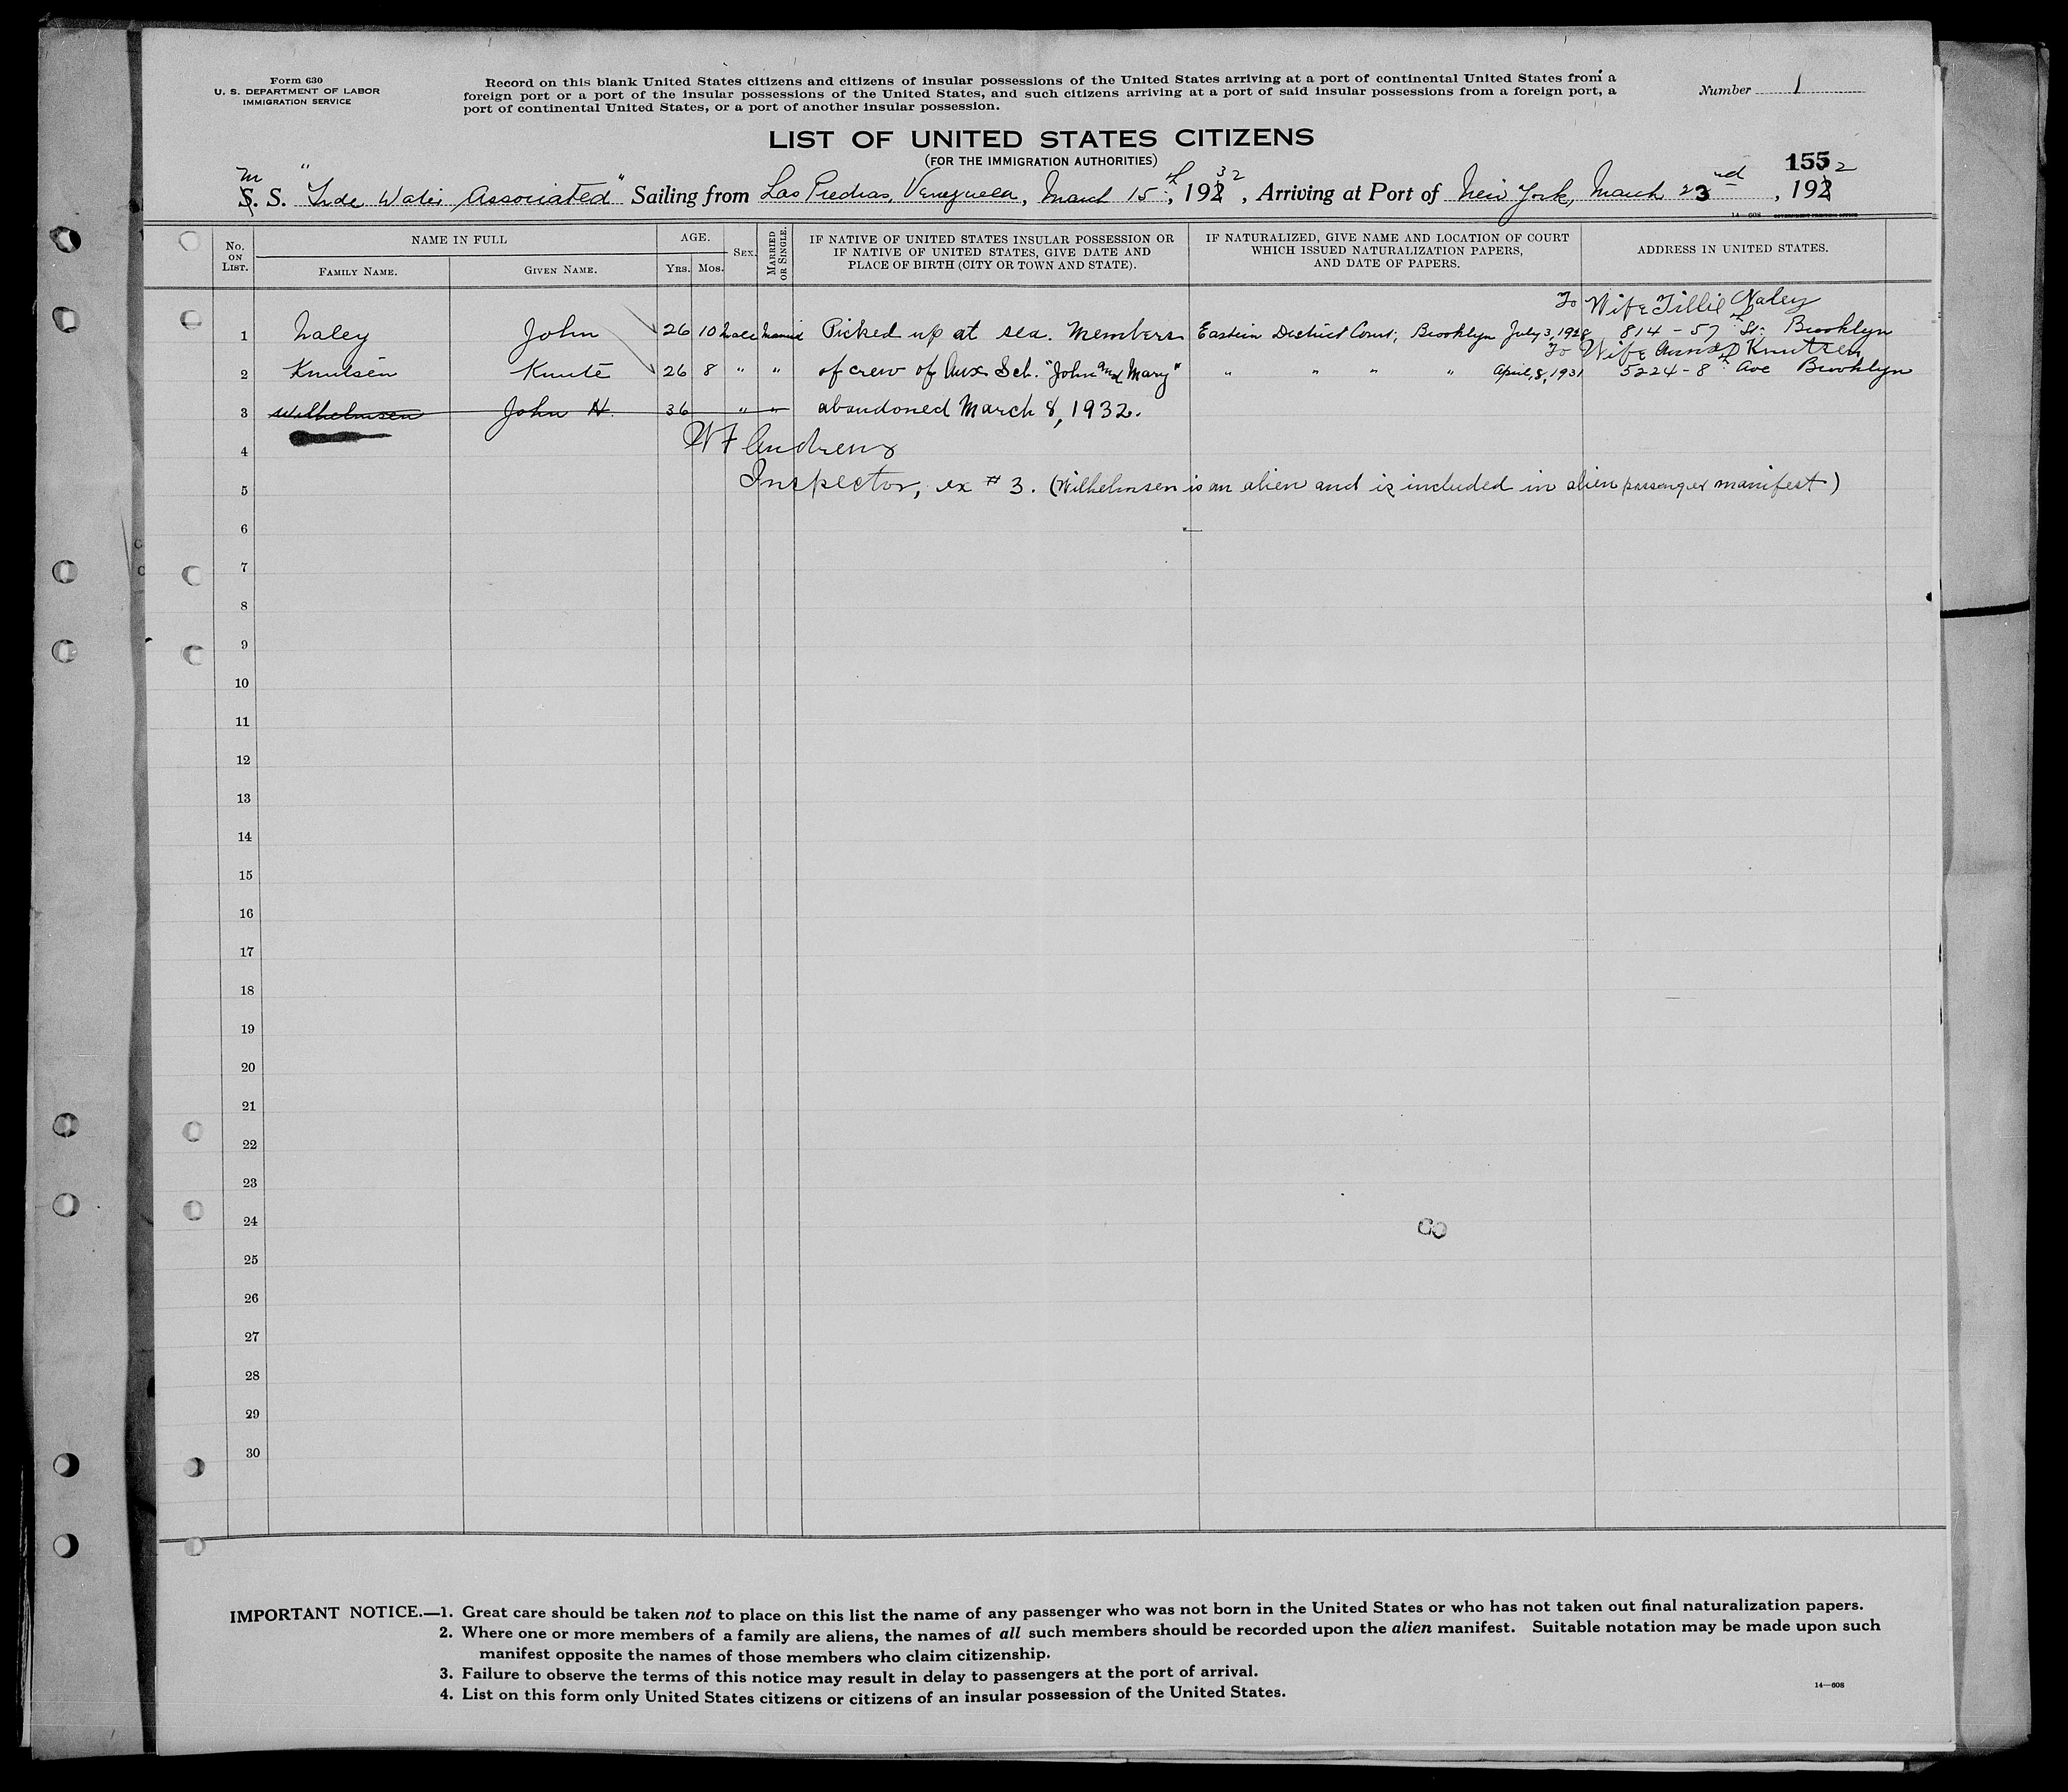 Form 630
U. S. DEPARTMENT OF LABOR
IMMIGRATION SERVICE
Record on this blank United States citizens and citizens of insular possessions of the United States arriving at a port of continental United States from a
foreign port or a port of the insular possessions of the United States, and such citizens arriving at a port of said insular possessions from a foreign port, a
port of continental United States, or a port of another insular possession.
Number 1
LIST OF UNITED STATES CITIZENS
(FOR THE IMMIGRATION AUTHORITIES)
155 2
M
S. S. "Tide Water Associated" Sailing from Las Piedras, Venezuela, March 15th, 1932, Arriving at Port of New York, March 23rd, 1932
14—608 GOVERNMENT PRINTING OFFICE
No. ON LIST.
NAME IN FULL
FAMILY NAME.
GIVEN NAME.
AGE.
YRS.
MOS.
SEX.
MARRIED OR SINGLE.
IF NATIVE OF UNITED STATES INSULAR POSSESSION OR
IF NATIVE OF UNITED STATES, GIVE DATE AND
PLACE OF BIRTH (CITY OR TOWN AND STATE).
IF NATURALIZED, GIVE NAME AND LOCATION OF COURT
WHICH ISSUED NATURALIZATION PAPERS,
AND DATE OF PAPERS.
ADDRESS IN UNITED STATES.
To Wife Tillie Naley
1 Naley John 26 10 Male Married Picked up at sea. Members Eastern District Court, Brooklyn July 3, 1928 814 - 57th St. Brooklyn
To Wife Knutsen
2 Knutsen Knute 26 8 " " of crew of Aux Sch. "John and Mary" " " " " April, 8, 1931 5224 - 8th Ave Brooklyn
3 Wilhelmsen John H. 36 " " abandoned March 8, 1932.
4 W F Andrews
5 Inspector, ex # 3. (Wilhelmsen is an alien and is included in alien passenger manifest)
6
7
8
9
10
11
12
13
14
15
16
17
18
19
20
21
22
23
24
25
26
27
28
29
30
IMPORTANT NOTICE.—1. Great care should be taken not to place on this list the name of any passenger who was not born in the United States or who has not taken out final naturalization papers.
2. Where one or more members of a family are aliens, the names of all such members should be recorded upon the alien manifest. Suitable notation may be made upon such
manifest opposite the names of those members who claim citizenship.
3. Failure to observe the terms of this notice may result in delay to passengers at the port of arrival.
4. List on this form only United States citizens or citizens of an insular possession of the United States.
14—608